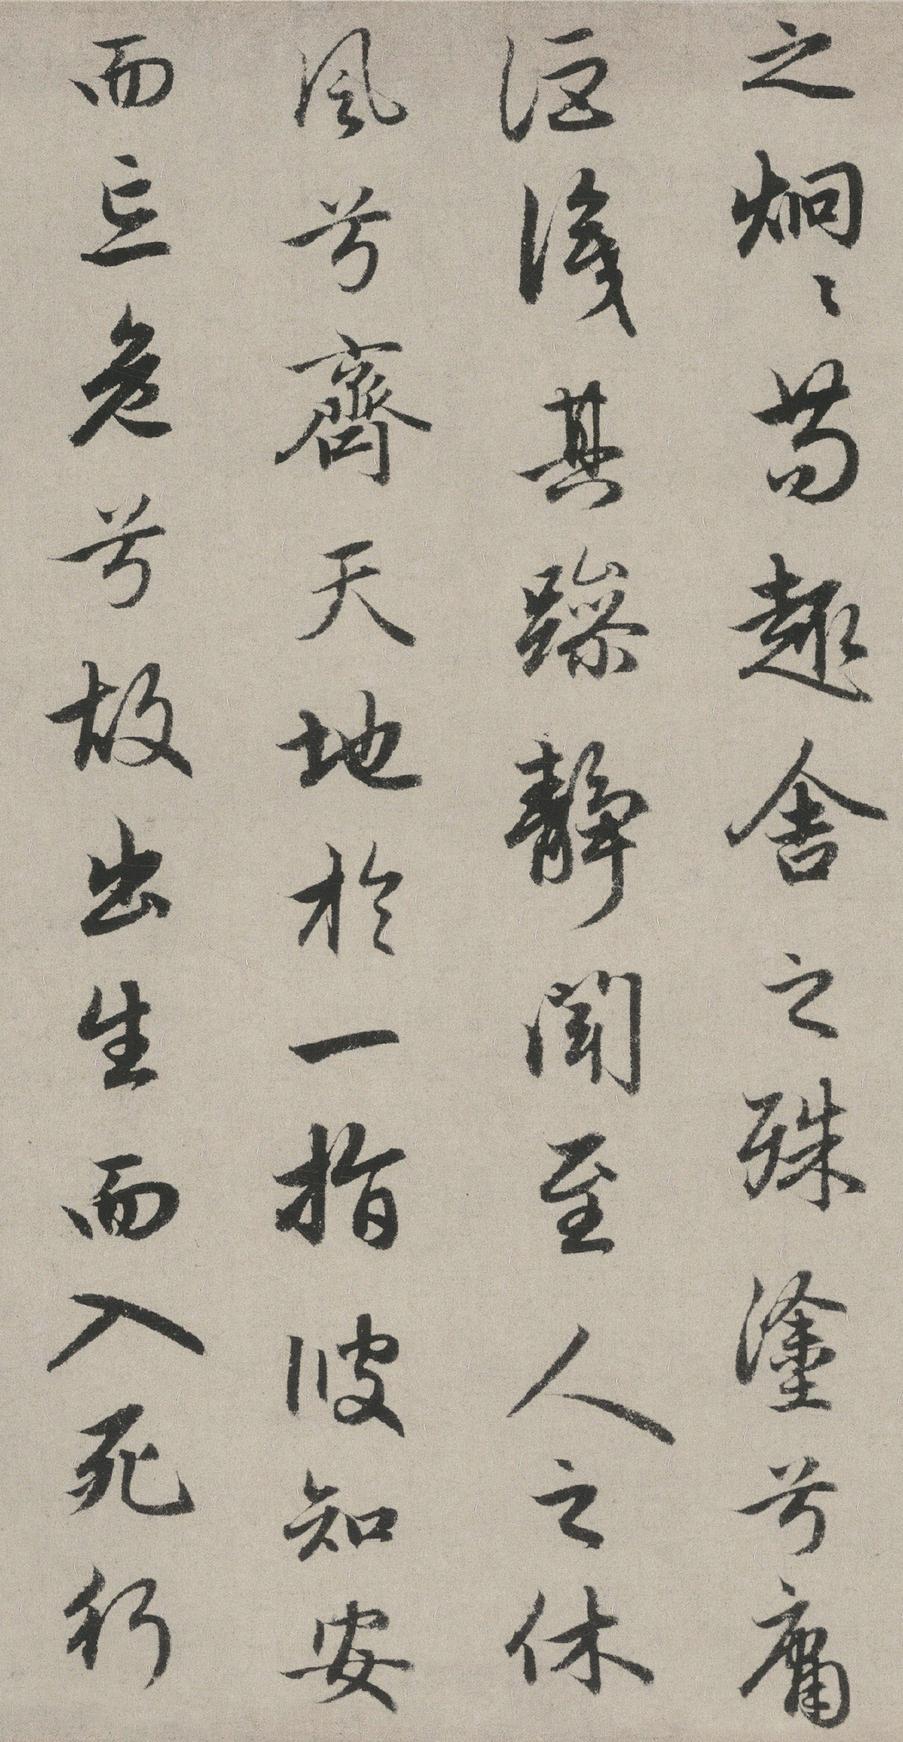 之烱〻苟趣舍之殊塗兮庸
詎識其躁靜聞至人之休
風兮齊天地於一指彼知安
而忘危兮故出生而入死行